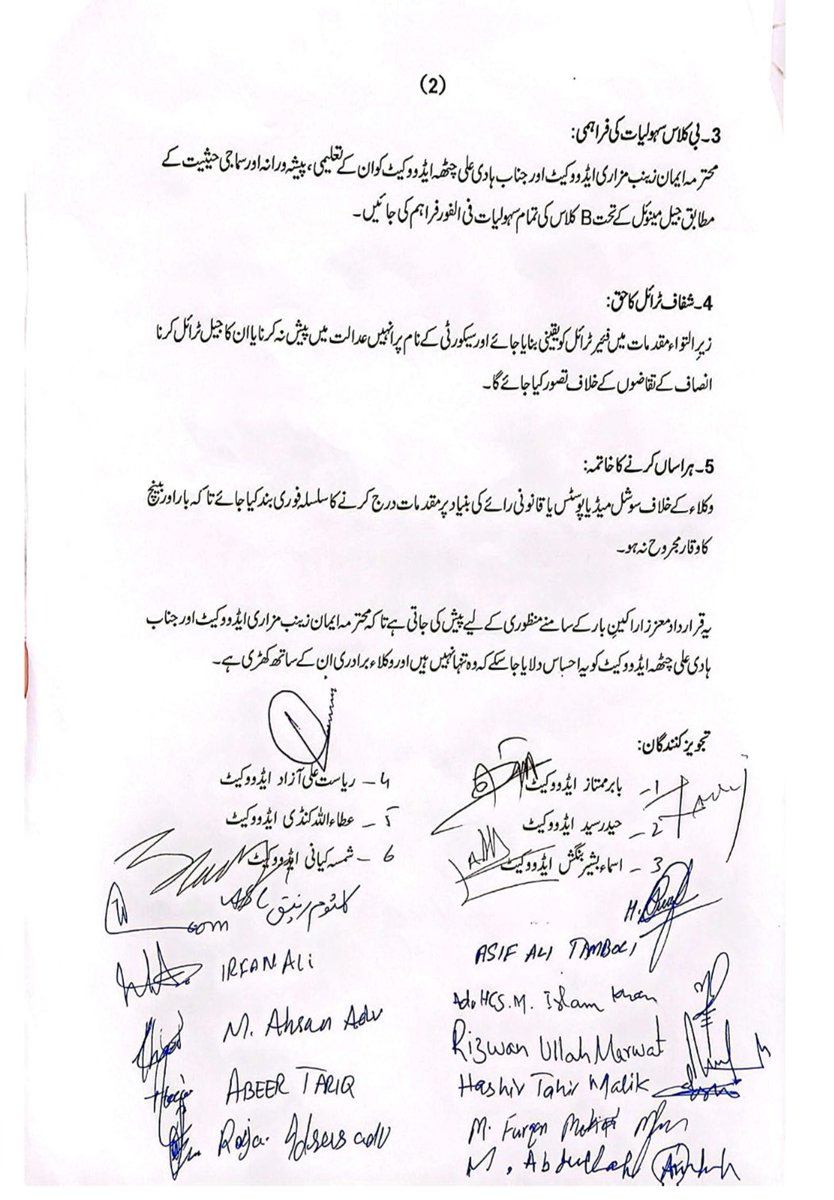 (2)
3۔ بی کلاس سہولیات کی فراہمی:
محترمہ ایمان زینب مزاری ایڈووکیٹ اور جناب ہادی علی چٹھہ ایڈووکیٹ کو ان کے تعلیمی، پیشہ ورانہ اور سماجی حیثیت کے
مطابق جیل مینوئل کے تحت B کلاس کی تمام سہولیات فی الفور فراہم کی جائیں۔
4۔ شفاف ٹرائل کا حق:
زیر التواء مقدمات میں فئیر ٹرائل کو یقینی بنایا جائے اور سیکورٹی کے نام پر انہیں عدالت میں پیش نہ کرنا یا ان کا جیل ٹرائل کرنا
انصاف کے تقاضوں کے خلاف تصور کیا جائے گا۔
5۔ ہراساں کرنے کا خاتمہ:
وکلاء کے خلاف سوشل میڈیا پوسٹس یا قانونی رائے کی بنیاد پر مقدمات درج کرنے کا سلسلہ فوری بند کیا جائے تاکہ بار اور بینچ
کا وقار مجروح نہ ہو۔
یہ قرارداد معزز اراکین بار کے سامنے منظوری کے لیے پیش کی جاتی ہے تاکہ محترمہ ایمان زینب مزاری ایڈووکیٹ اور جناب
ہادی علی چٹھہ ایڈووکیٹ کو یہ احساس دلایا جا سکے کہ وہ تنہا نہیں ہیں اور وکلاء برادری ان کے ساتھ کھڑی ہے۔
تجویز کنندگان:
1۔ بابر ممتاز ایڈووکیٹ
2۔ حیدر سید ایڈووکیٹ
3۔ اسماء بشیر بنگش ایڈووکیٹ
4۔ ریاست علی آزاد ایڈووکیٹ
5۔ عطاء اللہ کنڈی ایڈووکیٹ
6۔ شمسہ کیانی ایڈووکیٹ
کلثوم رفیق
IRFAN ALI
M. Ahsan Adv
ABEER TARIQ
Raja Idrees adv
ASIF ALI TAMBOLI
M. Islam Khan
Rizwan Ullah Marwat
Hashir Tahir Malik
M. Furqan
M. Abdullah